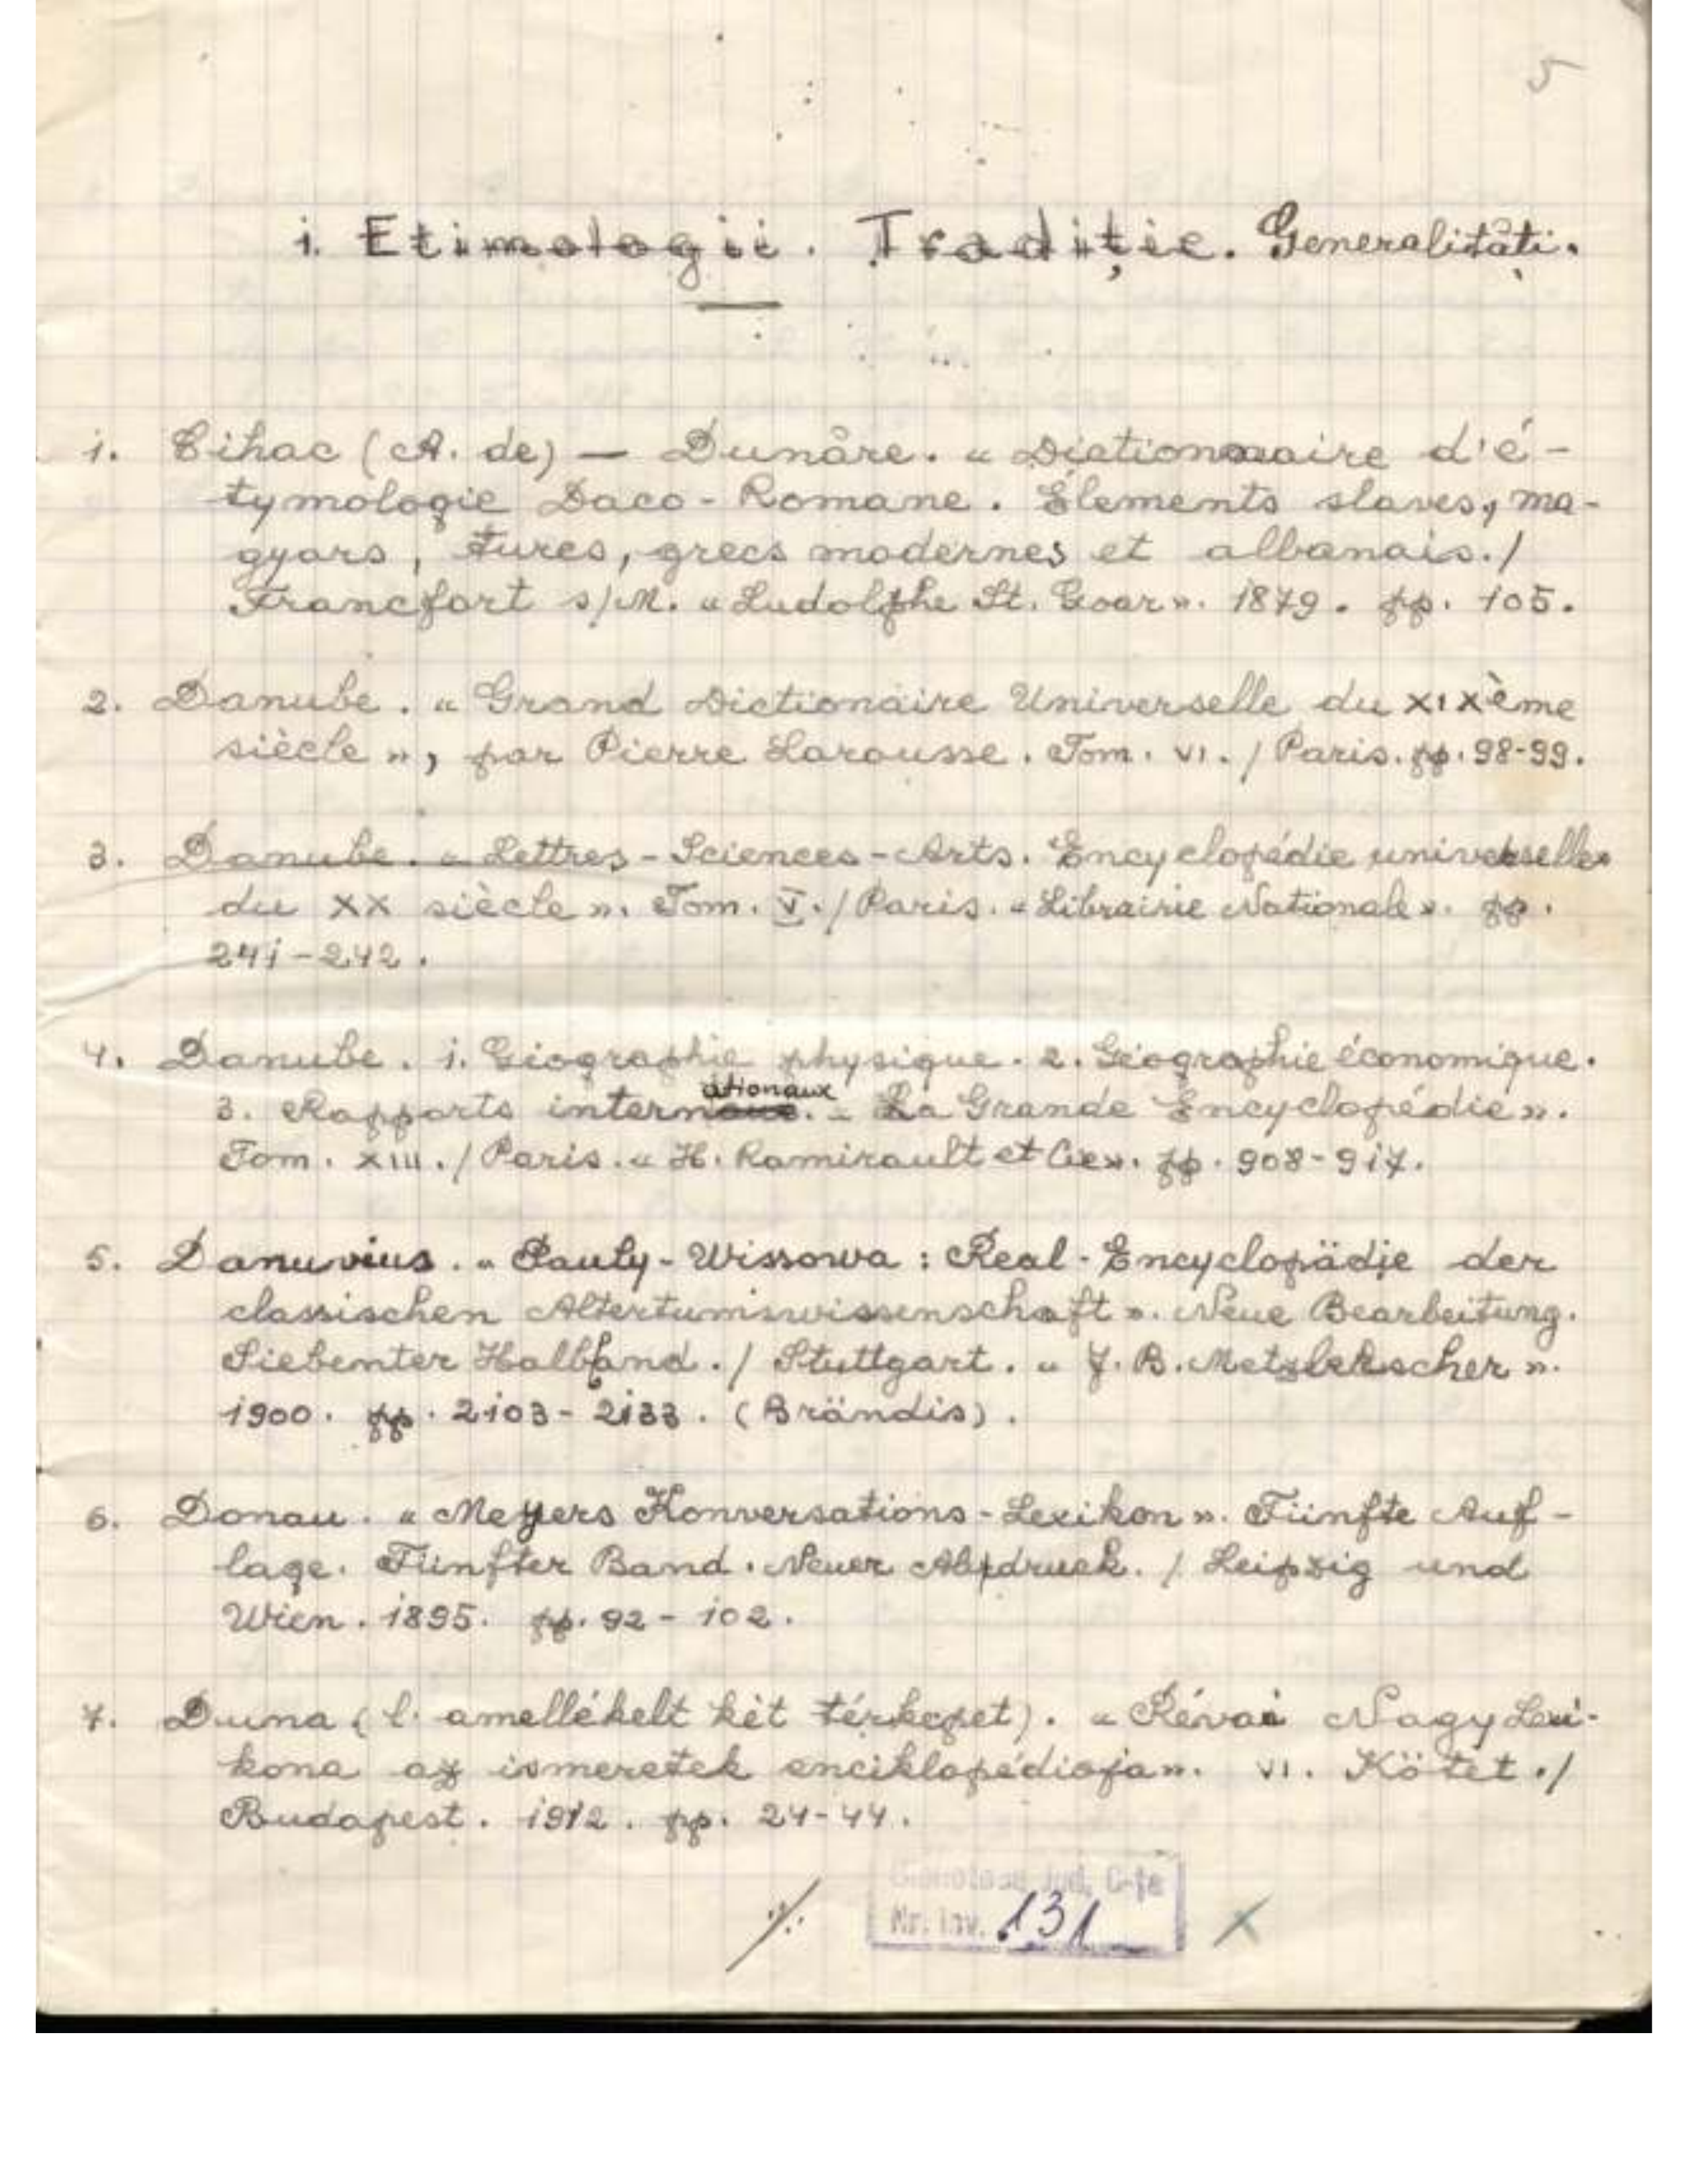 5
1. Etimologii. Tradiție. Generalități.
1. Cihac (A. de) — Dunăre. « Dictionnaire d'é-
tymologie Daco-Romane. Élements slaves, ma-
gyars, turcs, grecs modernes et albanais./
Francfort s/M. « Ludolphe St. Goar ». 1879. pp. 105.
2. Danube. « Grand Dictionaire Universelle du XIXème
siècle », par Pierre Larousse. Tom. VI. / Paris. pp. 98-99.
3. Danube. « Lettres-Sciences-Arts. Encyclopédie universelle
du XX siècle ». Tom. V. / Paris. « Librairie Nationale ». pp.
241-242.
4. Danube. 1. Géographie physique. 2. Géographie économique.
3. Rapports internationaux. « La Grande Encyclopédie ».
Tom. XIII. / Paris. « H. Lamirault et Cie ». pp. 908-917.
5. Danuvius. « Pauly-Wissowa: Real-Encyclopädie der
classischen Altertumswissenschaft ». Neue Bearbeitung.
Siebenter Halbband. / Stuttgart. « J. B. Metzlerscher ».
1900. pp. 2103-2133. (Brändis).
6. Donau. « Meyers Konversations-Lexikon ». Fünfte Auf-
lage. Fünfter Band. Neuer Abdruck. / Leipzig und
Wien. 1895. pp. 92-102.
7. Duna (l. amellékelt két térkepet). « Révai Nagy Lexi-
kona az ismeretek enciklopédiaja ». VI. Kötet. /
Budapest. 1912. pp. 24-44.
./.
Biblioteca Jud. C-ța
Nr. inv. 131